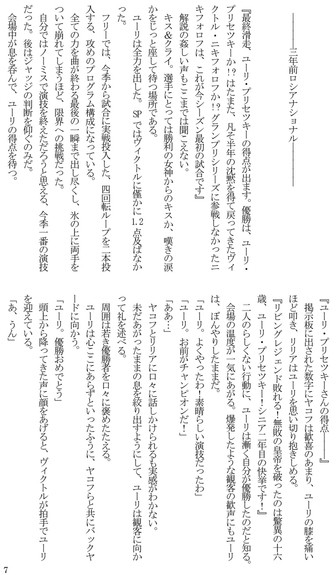 ――――三年前ロシアナショナル――――
『最終滑走、ユーリ・プリセツキーの得点が出ます。優勝は、ユーリ・
プリセツキーか!? はたまた、凡そ半年の沈黙を得て戻ってきたヴィ
クトル・ニキフォロフか!? グランプリシリーズに参戦しなかったニ
キフォロフは、これが今シーズン最初の試合です』
解説の姦しい声もここまでは聞こえない。
キス&クライ。選手にとっては勝利の女神からのキスか、嘆きの涙
かをじっと座して待つ場所である。
ユーリは全力を出した。SPではヴィクトルに僅かに1.2点及ばなか
った。
フリーでは、今季から試合に実戦投入した、四回転ループを二本投
入する、攻めのプログラム構成になっている。
全ての力を曲が終わる最後の一瞬まで出し尽くし、氷の上に両手を
ついて崩れてしまうほど、限界への挑戦だった。
自分ではノーミスで演技を終えただろうと思える、今季一番の演技
だった。後はジャッジの判断を仰ぐのみだ。
会場中が息を呑んで、ユーリの得点を待つ。
『ユーリ・プリセツキーさんの得点――』
掲示板に出された数字にヤコフは歓喜のあまり、ユーリの膝を痛い
ほど叩き、リリアはユーリを思い切り抱きしめる。
『リビングレジェンド敗れる!無敗の皇帝を破ったのは驚異の十六
歳、ユーリ・プリセツキー!シニア二年目の快挙です!』
二人のらしくない行動に、ユーリは漸く自分が優勝したのだと知る。
会場の温度が一気にあがる。爆発したような観客の歓声にもユーリ
は、ぼんやりしたままだ。
「ユーリ。よくやったわ!素晴らしい演技だったわ」
「ユーリ。お前がチャンピオンだ!」
「ああ…」
ヤコフとリリアに口々に話しかけられるも実感がわかない。
未だあがったままの息を絞り出すようにして、ユーリは観客に向か
って礼を述べる。
周囲は若き優勝者を口々に褒めたたえる。
ユーリは心ここにあらずといったふうに、ヤコフらと共にバックヤ
ードに向かう。
「ユーリ。優勝おめでとう」
頭上から降ってきた声に顔をあげると、ヴィクトルが拍手でユーリ
を迎えている。
「あ、うん」
7